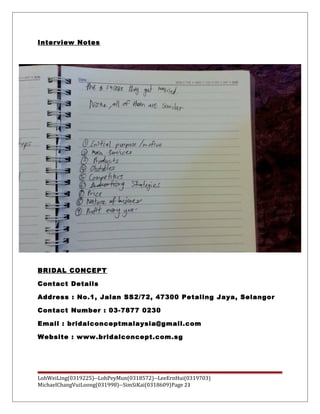 Interview Notes
Date
they get married
all of them are similar
① Initial purpose/motive
② Main Services
③ Products
④ Obstacles
⑤ Competitors
⑥ Advertising Strategies
⑦ Price
⑧ Nature of business
⑨ Profit every year
BRIDAL CONCEPT
Contact Details
Address : No.1, Jalan SS2/72, 47300 Petaling Jaya, Selangor
Contact Number : 03-7877 0230
Email : bridalconceptmalaysia@gmail.com
Website : www.bridalconcept.com.sg
LohWeiLing(0319225)--LohPeyMun(0318572)--LeeErnHui(0319703)
MichaelChangVuiLoong(031998)--SimSiKai(0318609)Page 23